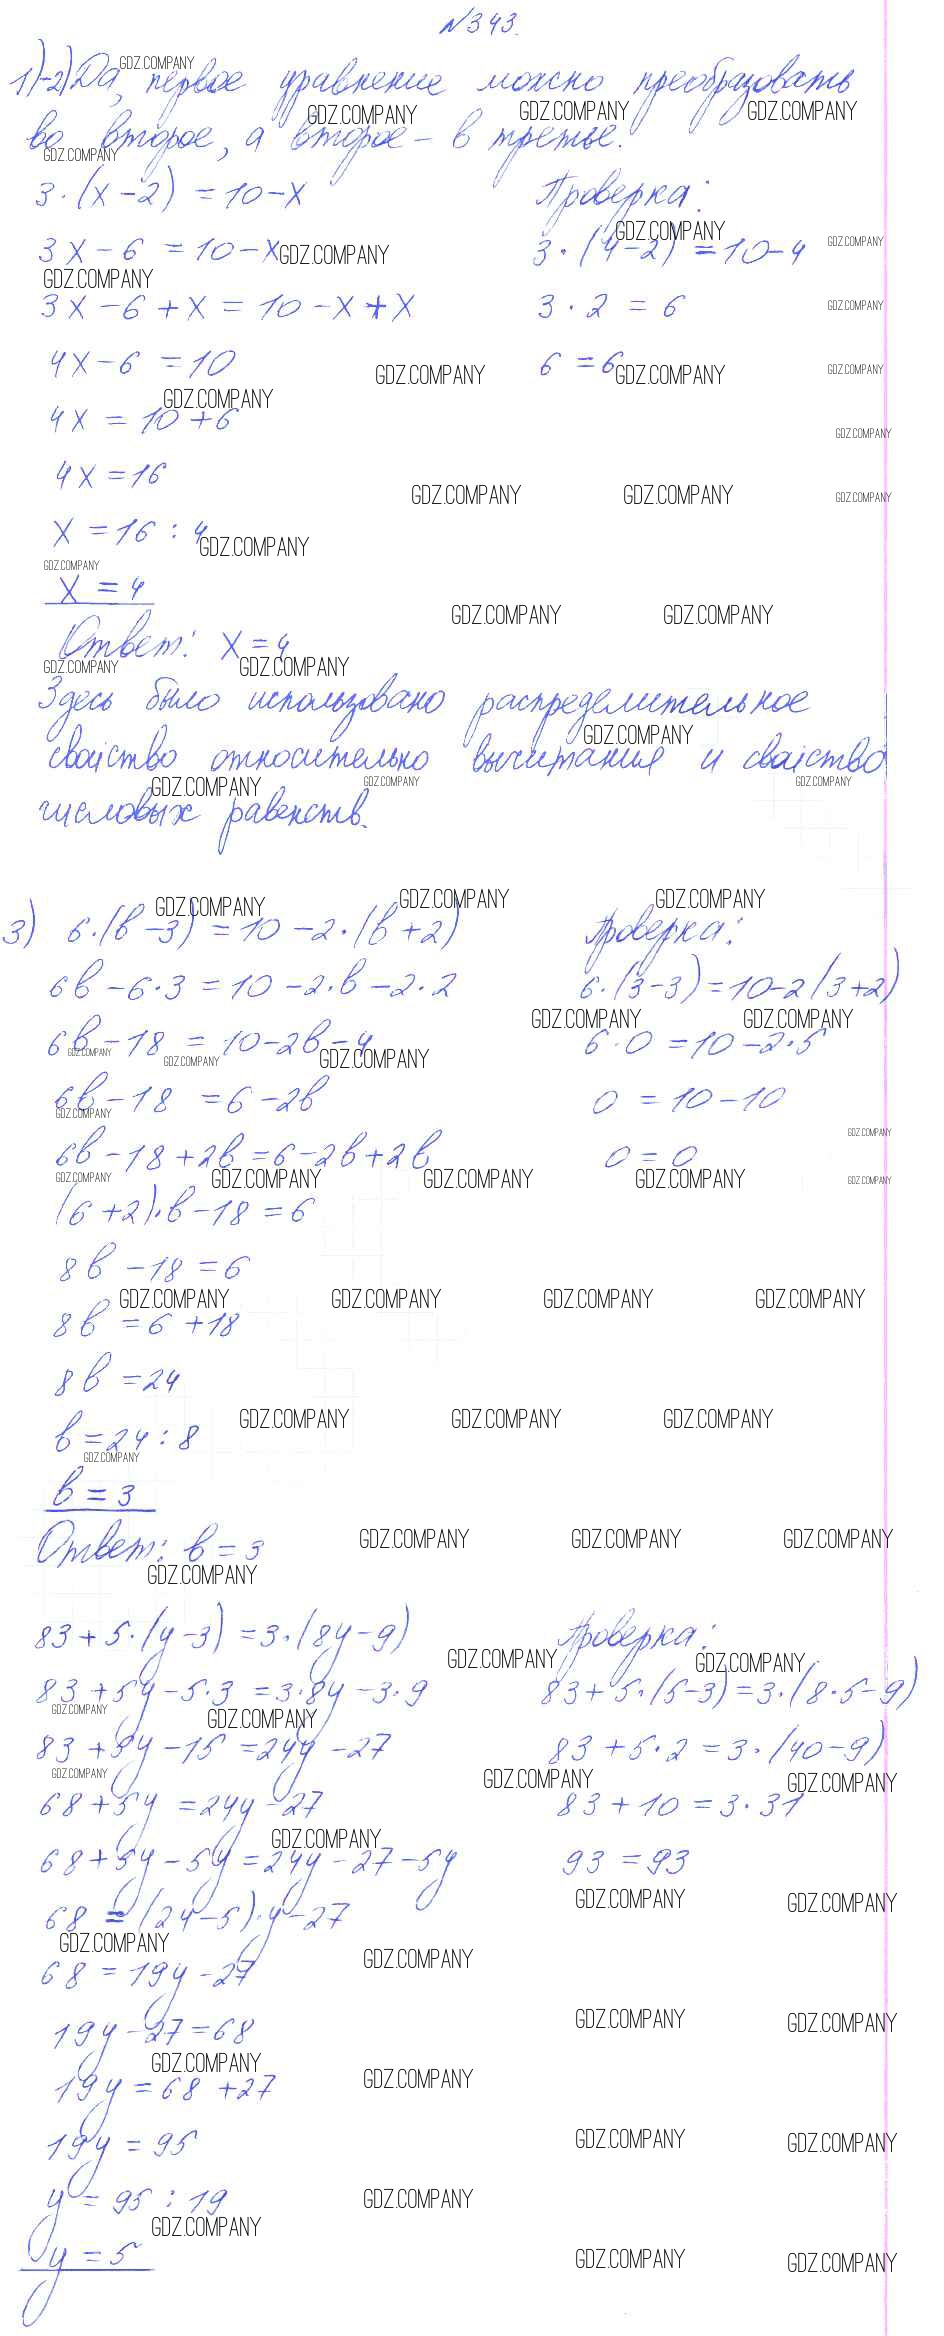 №343.
1)-2) Да, первое уравнение можно преобразовать
во второе, а второе – в третье.
3·(x-2) = 10-x
3x-6 = 10-x
3x-6+x = 10-x+x
4x-6 = 10
4x = 10+6
4x = 16
x = 16 : 4
x = 4
Ответ: x = 4
Проверка:
3·(4-2) = 10-4
3·2 = 6
6 = 6
Здесь было использовано распределительное
свойство относительно вычитания и свойство
числовых равенств.
3) 6·(b-3) = 10-2·(b+2)
6b-6·3 = 10-2·b-2·2
6b-18 = 10-2b-4
6b-18 = 6-2b
6b-18+2b = 6-2b+2b
(6+2)·b-18 = 6
8b-18 = 6
8b = 6+18
8b = 24
b = 24 : 8
b = 3
Ответ: b = 3
Проверка:
6·(3-3) = 10-2(3+2)
6·0 = 10-2·5
0 = 10-10
0 = 0
83+5·(y-3) = 3·(8y-9)
83+5y-5·3 = 3·8y-3·9
83+5y-15 = 24y-27
68+5y = 24y-27
68+5y-5y = 24y-27-5y
68 = (24-5)·y-27
68 = 19y-27
19y-27 = 68
19y = 68+27
19y = 95
y = 95 : 19
y = 5
Проверка:
83+5·(5-3) = 3·(8·5-9)
83+5·2 = 3·(40-9)
83+10 = 3·31
93 = 93
GDZ.COMPANY